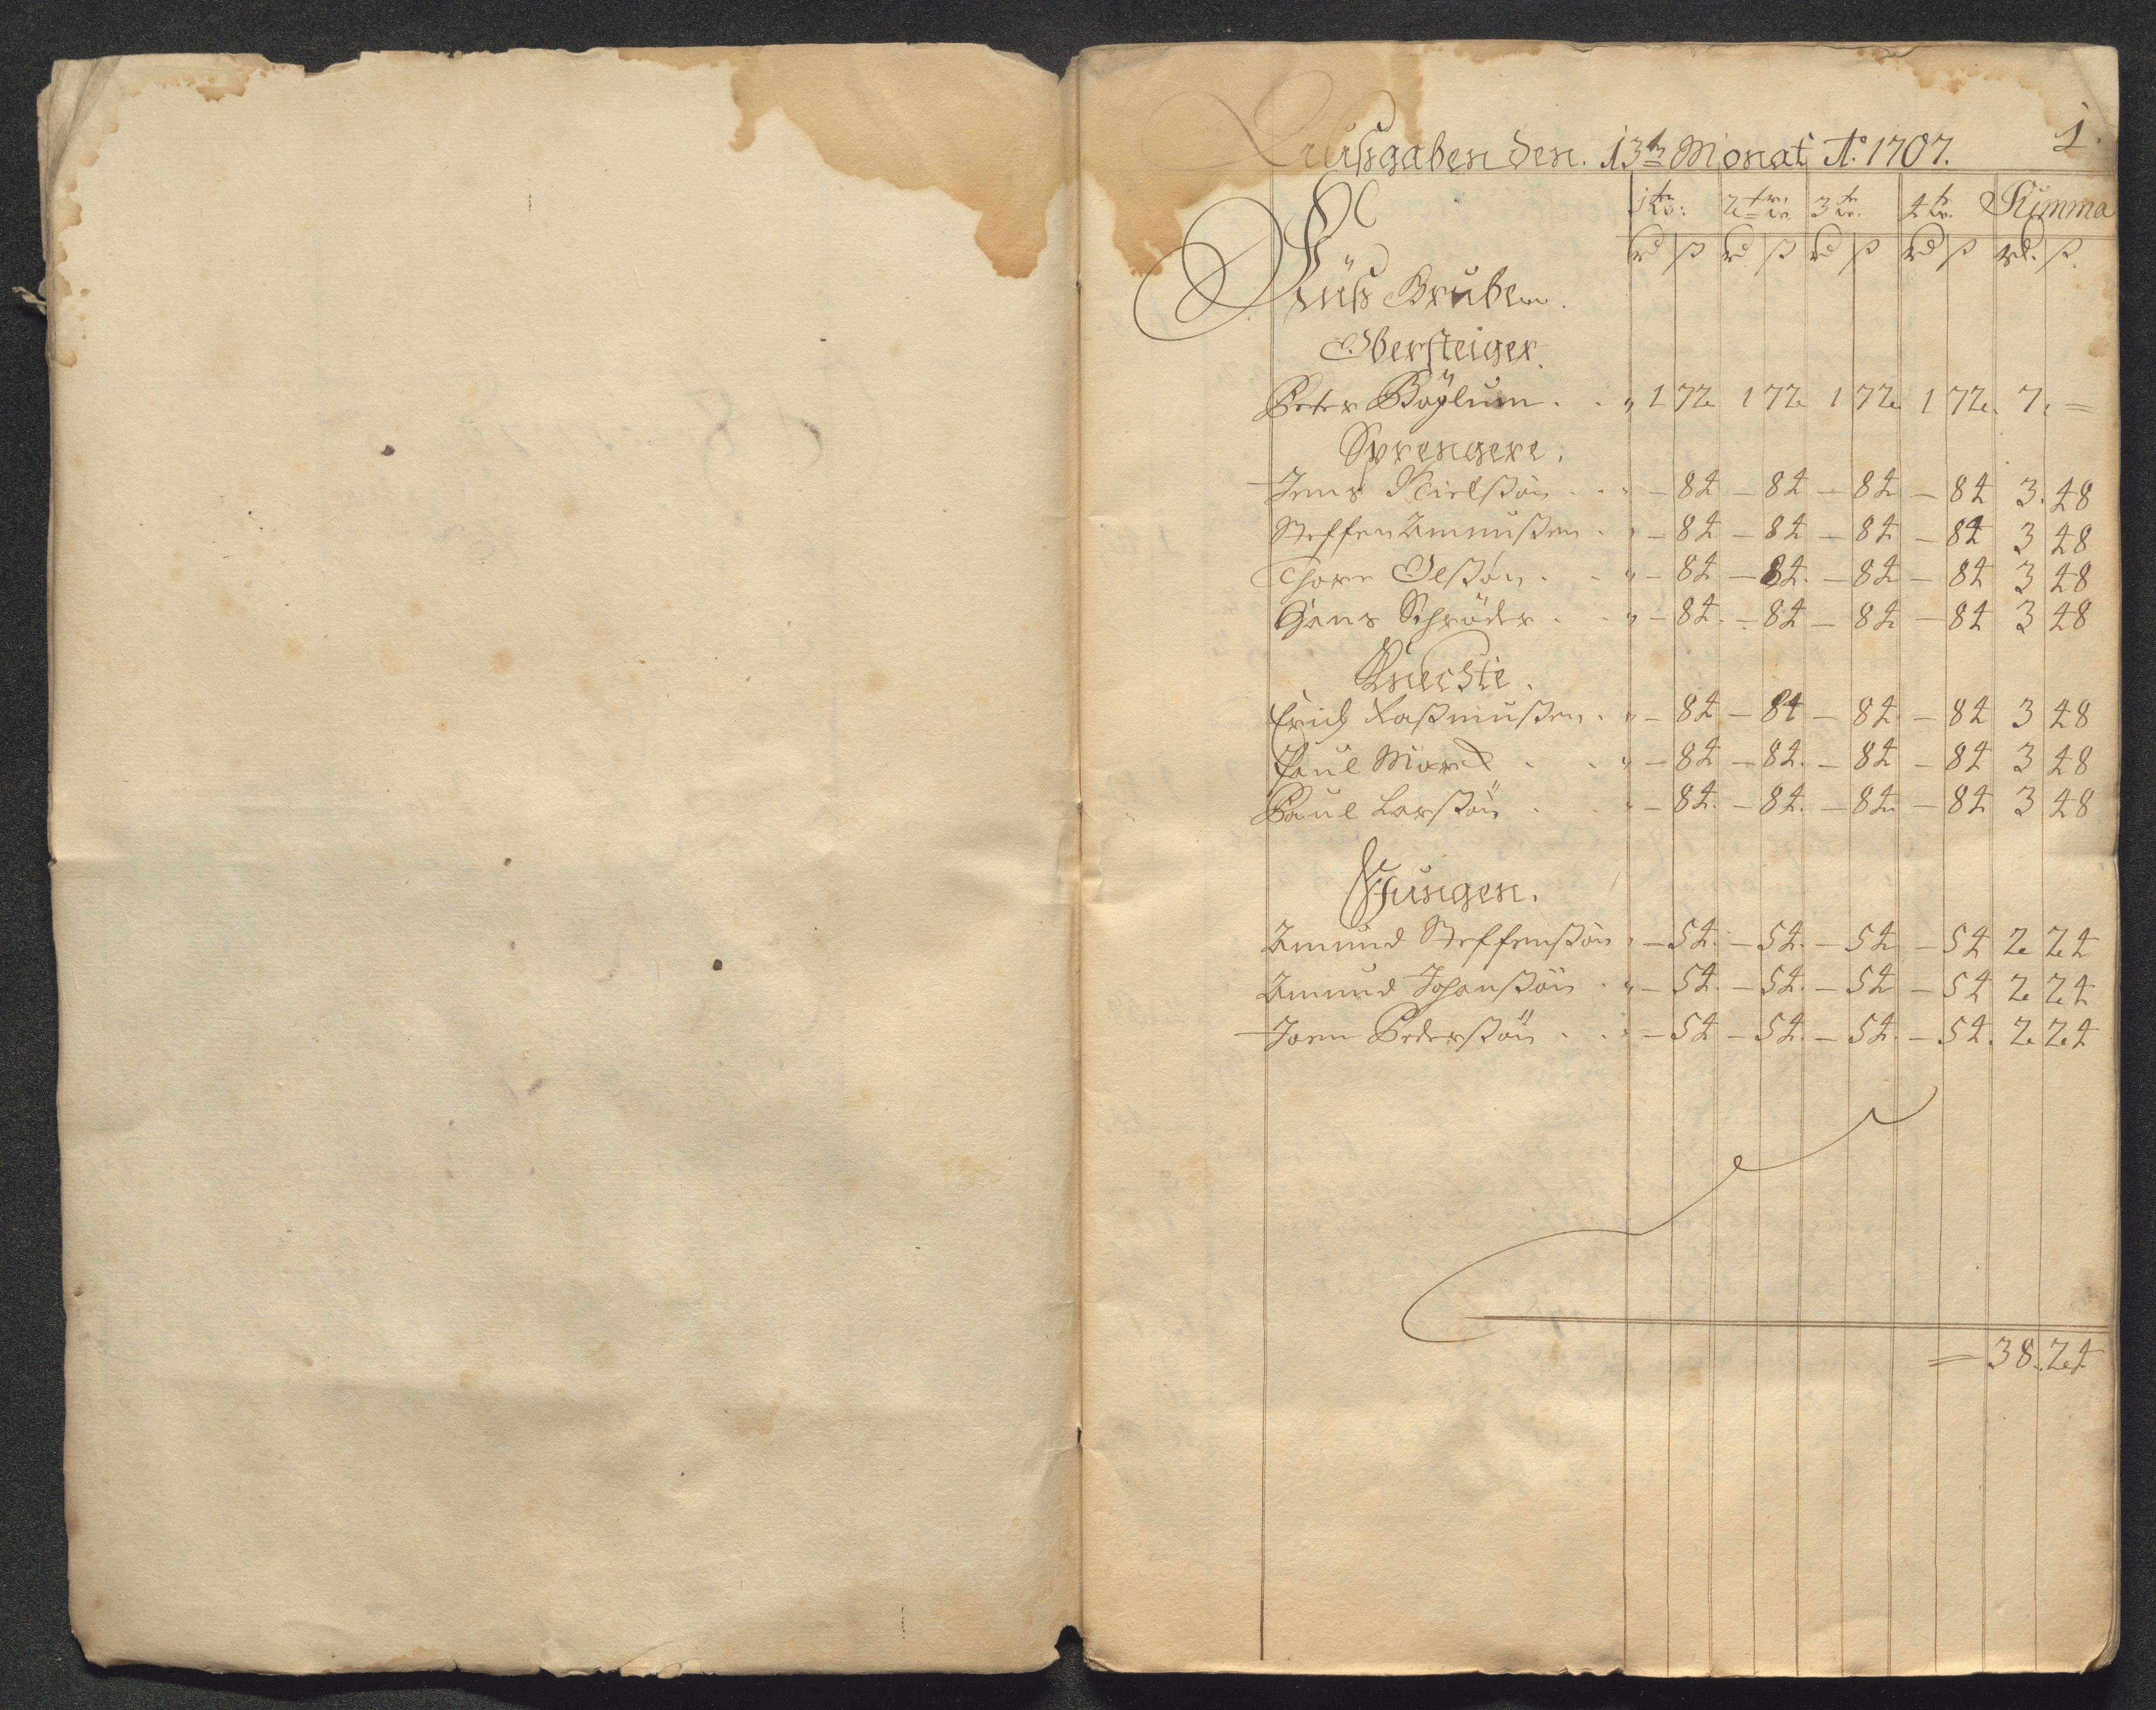 1.
Aussgaben den. 13tn Monat Ao. 1707.
1te 2te 3te 4te Summa
rd ß rd ß rd ß rd ß rd. ß.
Gruben.
Obersteiger.
Peter Böylum . . " 1 72 1 72 1 72 1 72. 7. =
Sprengere.
Jens Nielßön . . " - 84 - 84 - 84 - 84 3. 48
Steffen Ammußen . " - 84 - 84 - 84 - 84 3 48
Thore Olßön . . " - 84 - 84. - 84 - 84 3 48
Hans Schröder . . " - 84. - 84 - 84 - 84 3 48
Knechte.
Erich Raßmußen . " - 84 - 84 - 84 - 84 3 48
Paul Morch . . " - 84 - 84. - 84 - 84 3 48
Paul Larßön . . " - 84. - 84. - 84 - 84 3 48
Jungen.
Amund Steffenßön " - 54. - 54. - 54 - 54 2 24
Amund Johanßön . " - 54. - 54. - 54 - 54 2 24
Joen Pederßön . . " - 54 - 54. - 54. - 54. 2 24
= 38. 24